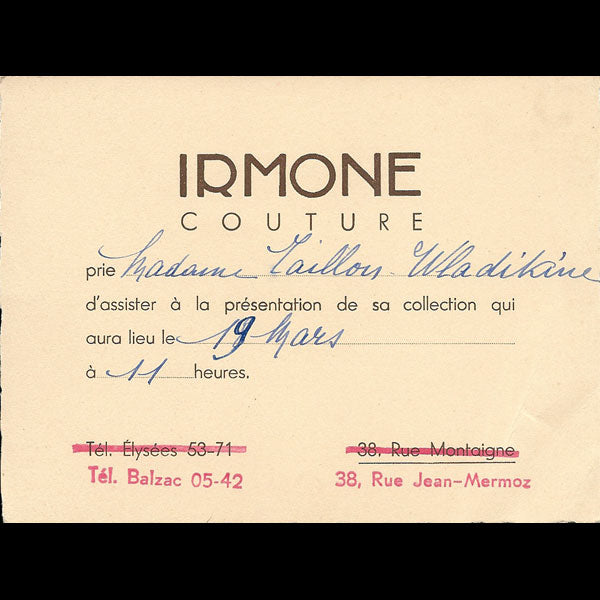 IRMONE
COUTURE
prie Madame Taillon Wladikine
d'assister à la présentation de sa collection qui
aura lieu le 19 Mars
à 11 heures.
Tél. Élysées 53-71 38, Rue Montaigne
Tél. Balzac 05-42 38, Rue Jean-Mermoz